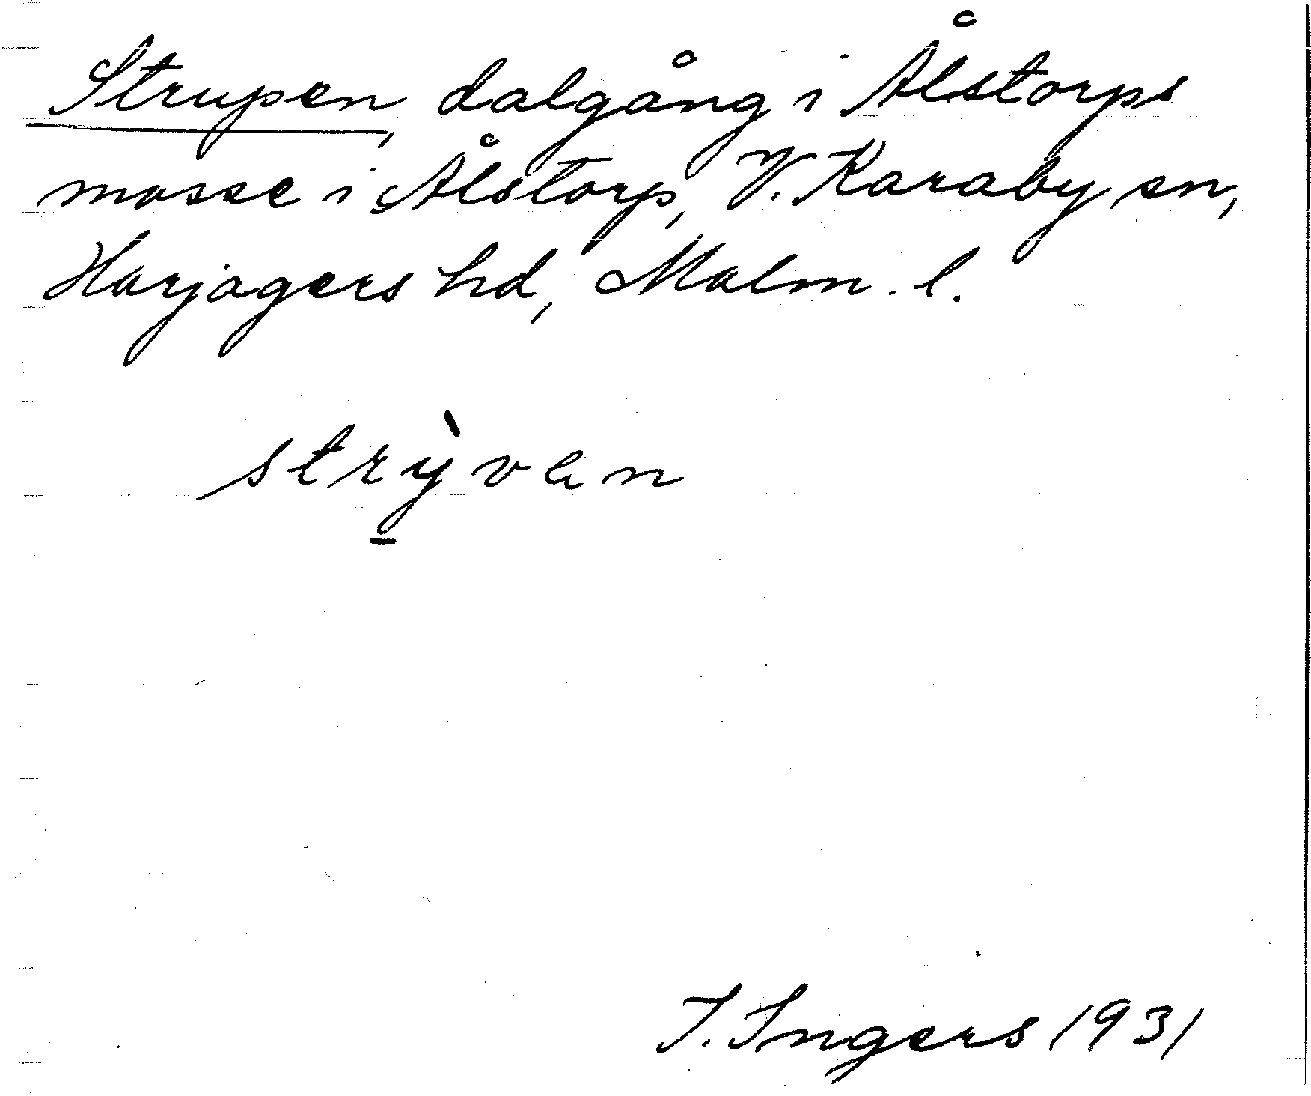 Strupen, dalgång i Ålstorps
mosse i Ålstorp, V. Karaby sn,
Harjagers hd, Malm. l.
strỳvan
I. Ingers 1931